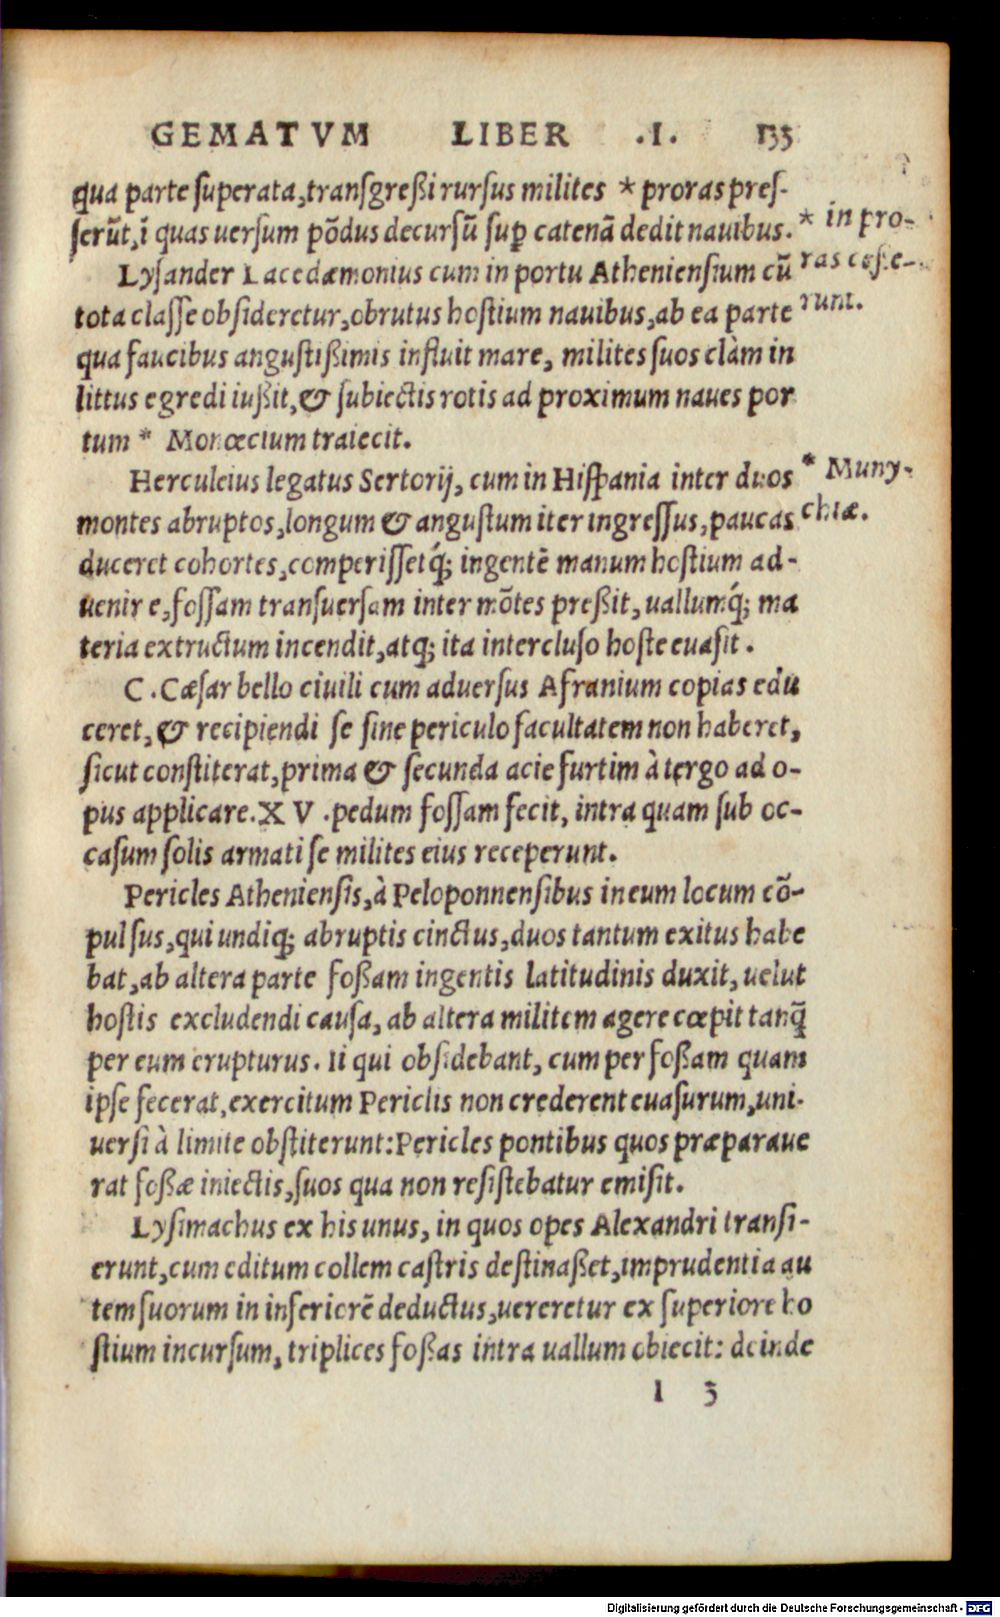 GEMATVM LIBER .I. 135
qua parte superata,transgreßi rursus milites * proras pres-
serũt,ĩ quas uersum põdus decursũ sup̱ catenã dedit nauibus.
* in pro-
Lysander Lacedæmonius cum in portu Atheniensium cũ
ras cesse-
tota classe obsideretur,obrutus hostium nauibus,ab ea parte
runt.
qua faucibus angustißimis influit mare, milites suos clàm in
littus egredi iußit,& subiectis rotis ad proximum naues por
tum * Monœcium traiecit.
Herculeius legatus Sertorij, cum in Hispania inter duos
* Muny-
montes abruptos,longum & angustum iter ingressus,paucas
chiæ.
duceret cohortes,comperissetq́; ingentẽ manum hostium ad-
uenire,fossam transuersam inter mõtes preßit, uallumq́; ma
teria extructum incendit,atq; ita intercluso hoste euasit .
C .Cæsar bello ciuili cum aduersus Afranium copias edu
ceret, & recipiendi se sine periculo facultatem non haberet,
sicut constiterat,prima & secunda acie furtim à tergo ad o-
pus applicare.XV .pedum fossam fecit, intra quam sub oc-
casum solis armati se milites eius receperunt.
Pericles Atheniensis,à Peloponnensibus in eum locum cõ-
pulsus,qui undiq; abruptis cinctus,duos tantum exitus habe
bat,ab altera parte foßam ingentis latitudinis duxit, uelut
hostis excludendi causa, ab altera militem agere cœpit tanq̃
per eum erupturus. Ii qui obsidebant, cum per foßam quam
ipse fecerat,exercitum Periclis non crederent euasurum,uni-
uersi à limite obstiterunt:Pericles pontibus quos præparaue
rat foßæ iniectis,suos qua non resistebatur emisit.
Lysimachus ex his unus, in quos opes Alexandri transi-
erunt,cum editum collem castris destinaßet,imprudentia au
tem suorum in inferiorẽ deductus,uereretur ex superiore ho
stium incursum, triplices foßas intra uallum obiecit: deinde
l 3
Digitalisierung gefördert durch die Deutsche Forschungsgemeinschaft - DFG